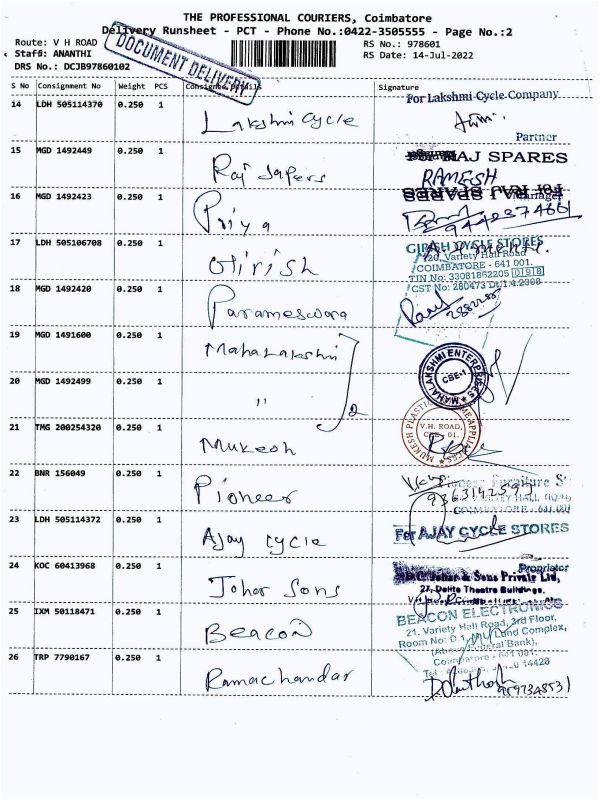 THE PROFESSIONAL COURIERS, Coimbatore
Delivery Runsheet - PCT - Phone No.:0422-3505555 - Page No.:2
Route: V H ROAD
RS No.: 978601
Staff: ANANTHI
RS Date: 14-Jul-2022
DRS No.: DCJB97860102
DOCUMENT DELIVERY
S No Consignment No Weight PCS Consignee Details Signature
14 LDH 505114370 0.250 1 Lakshmi Cycle
For Lakshmi Cycle Company
Partner
15 MGD 1492449 0.250 1
RAJ SPARES
RAMESH
16 MGD 1492423 0.250 1 Priya
Manager
17 LDH 505106708 0.250 1 Girish
GIRISH CYCLE STORES
120, Variety Hall Road
COIMBATORE - 641 001.
TIN No: 33081862205
CST No: 280473 Dt.1.4.2308
18 MGD 1492420 0.250 1 Parameswara
19 MGD 1491600 0.250 1 Mahalakshmi
MAHALAKSHMI ENTERPRISES
CBE-1
20 MGD 1492499 0.250 1 "
2
21 TMG 200254320 0.250 1 Mukesh
MUKESH PLASTIC HOME APPLIANCES
V.H. ROAD,
CBE - 01.
22 BNR 156049 0.250 1 Pioneer
Pioneer Furniture
VARIETY HALL ROAD
COIMBATORE - 641 001
23 LDH 505114372 0.250 1 Ajay cycle
For AJAY CYCLE STORES
Proprietor
24 KOC 60413968 0.250 1 Johar Sons
Johar & Sons Private Ltd,
27, Delite Theatre Buildings,
25 IXM 50118471 0.250 1 Beacon
BEACON ELECTRONICS
21, Variety Hall Road, 3rd Floor,
Room No: D.1, Lund Complex,
(Above Federal Bank),
Coimbatore - 641 001.
Tel :
26 TRP 7790167 0.250 1 Ramachandar